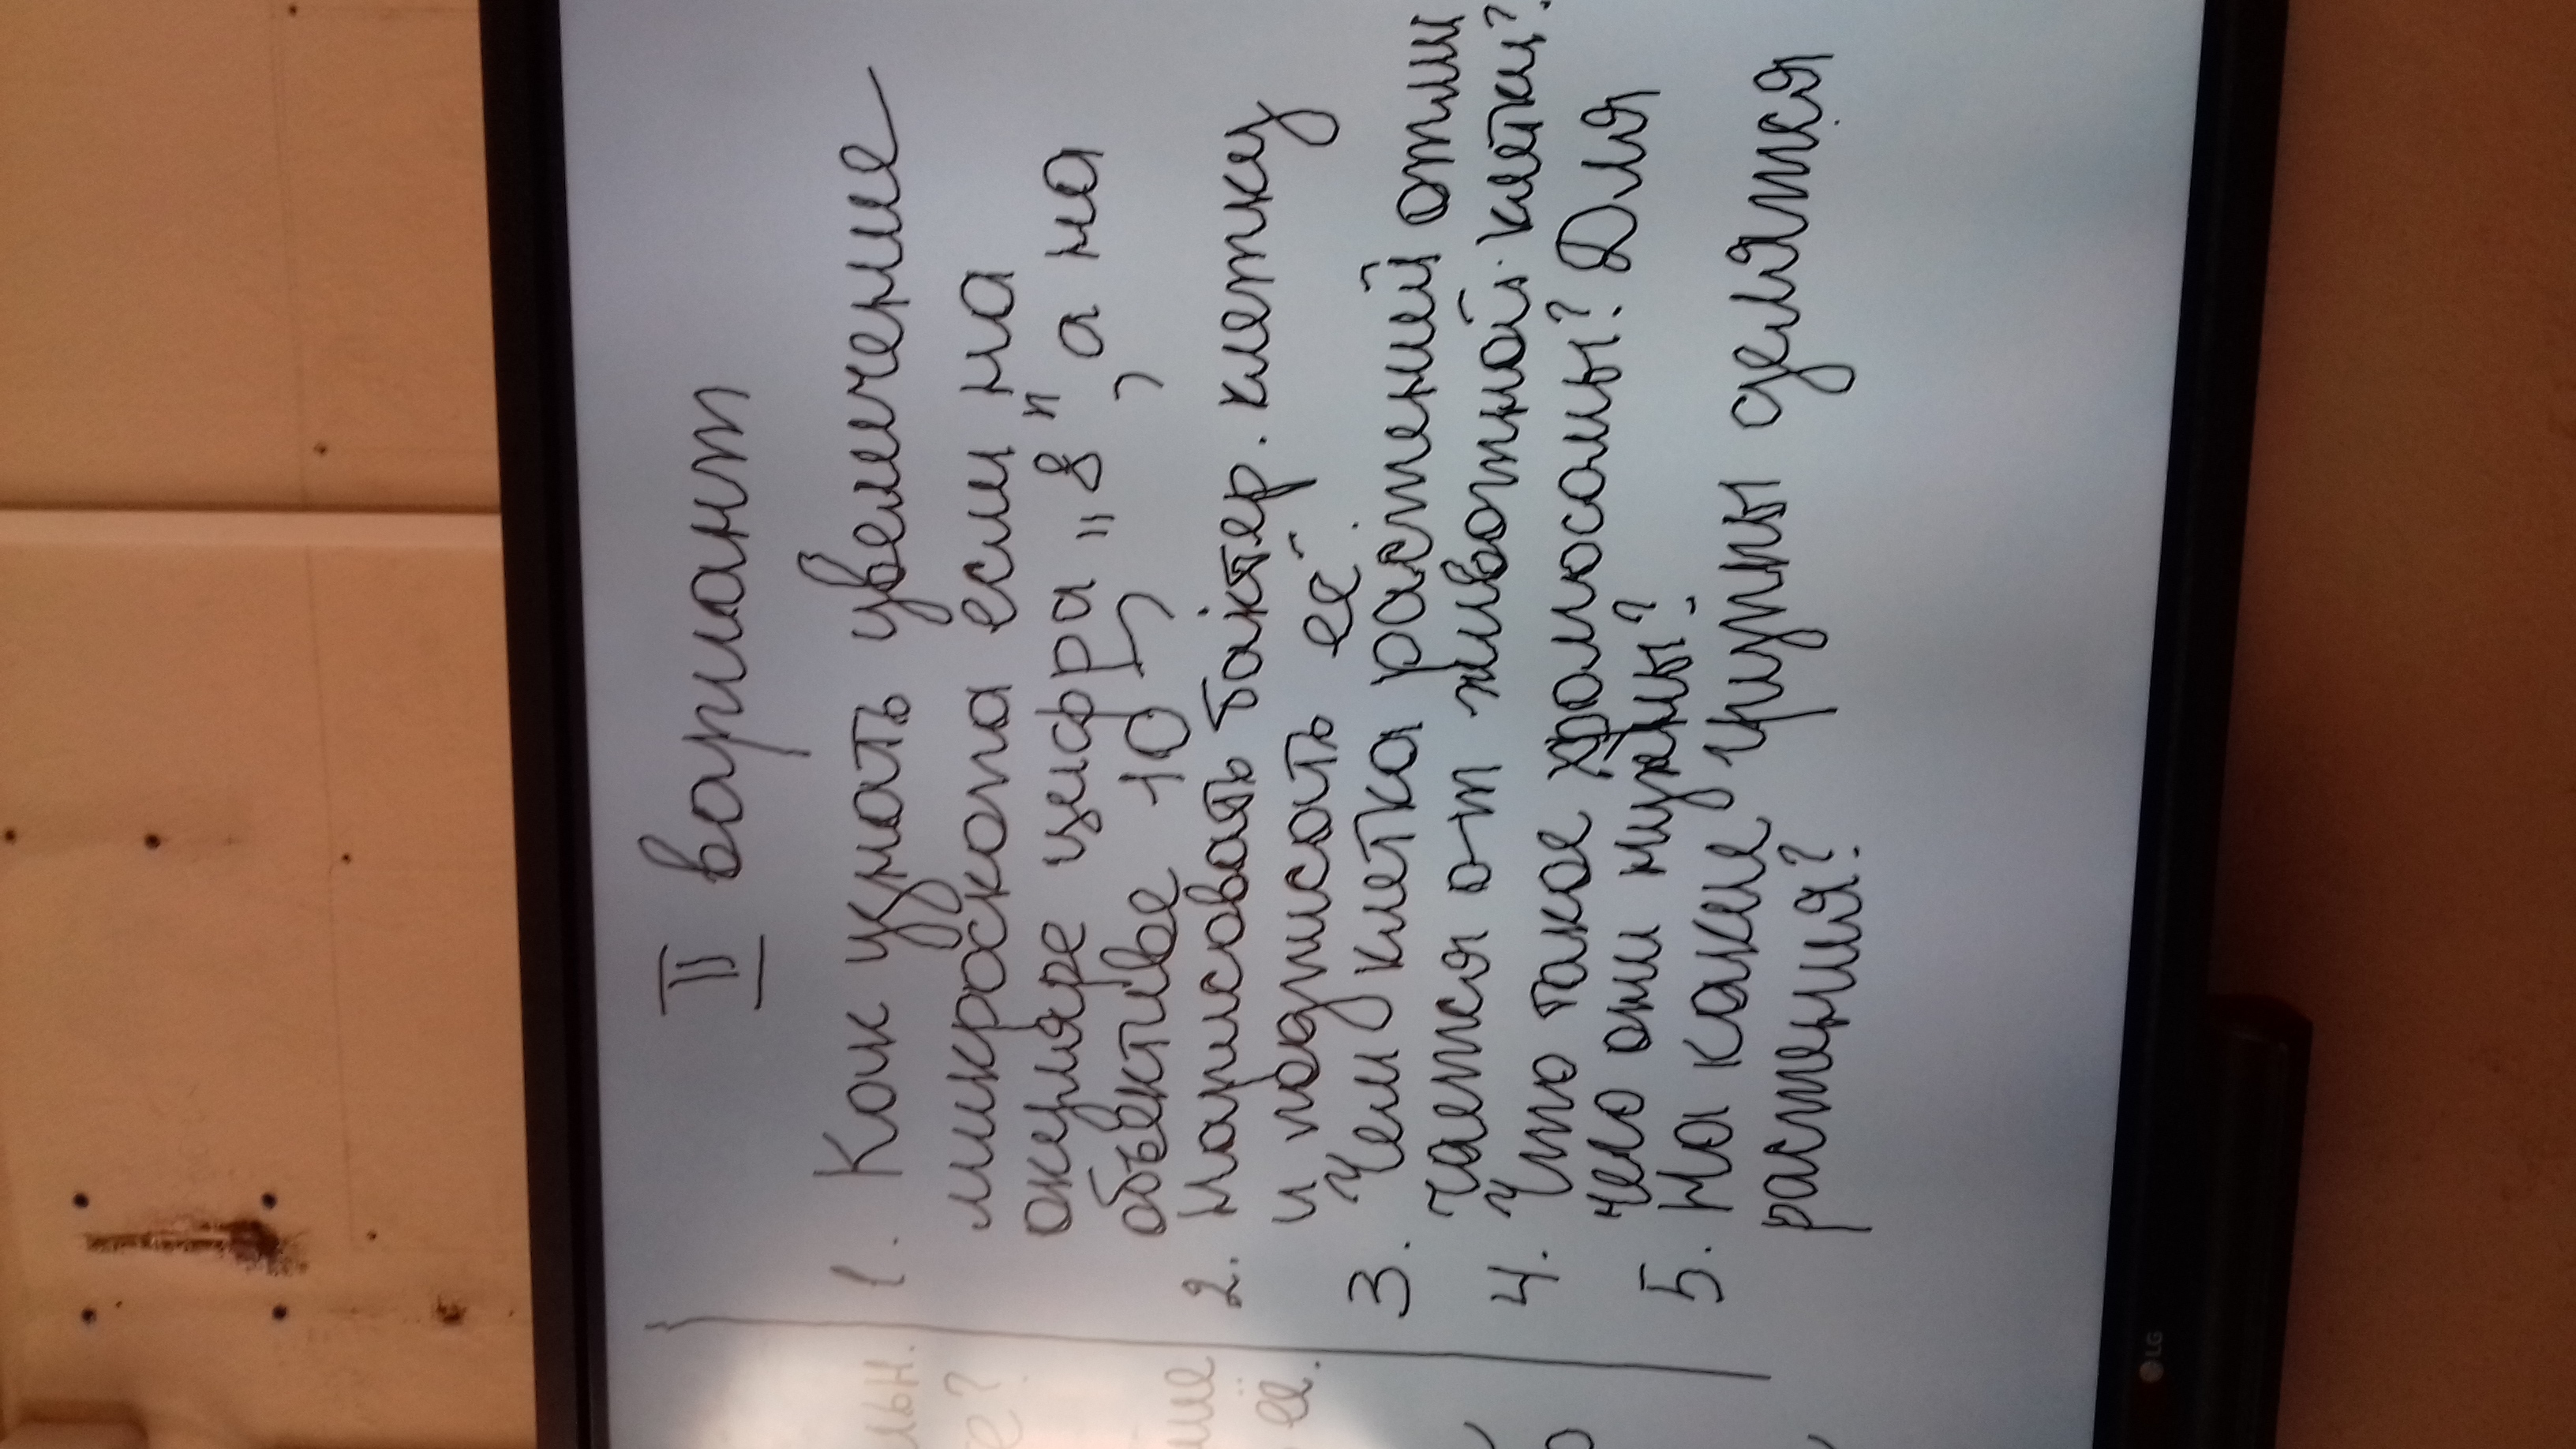 II вариант
1. Как узнать увеличение
микроскопа если на
окуляре цифра "8", а на
объективе 10
2. Нарисовать бактер. клетку
и подписать её.
3. Чем клетка растений отли
чается от животной клетки?
4. Что такое хромосомы? Для
чего они нужны?
5. На какие группы делятся
растения?
льн.
е?
ние
ё.
LG